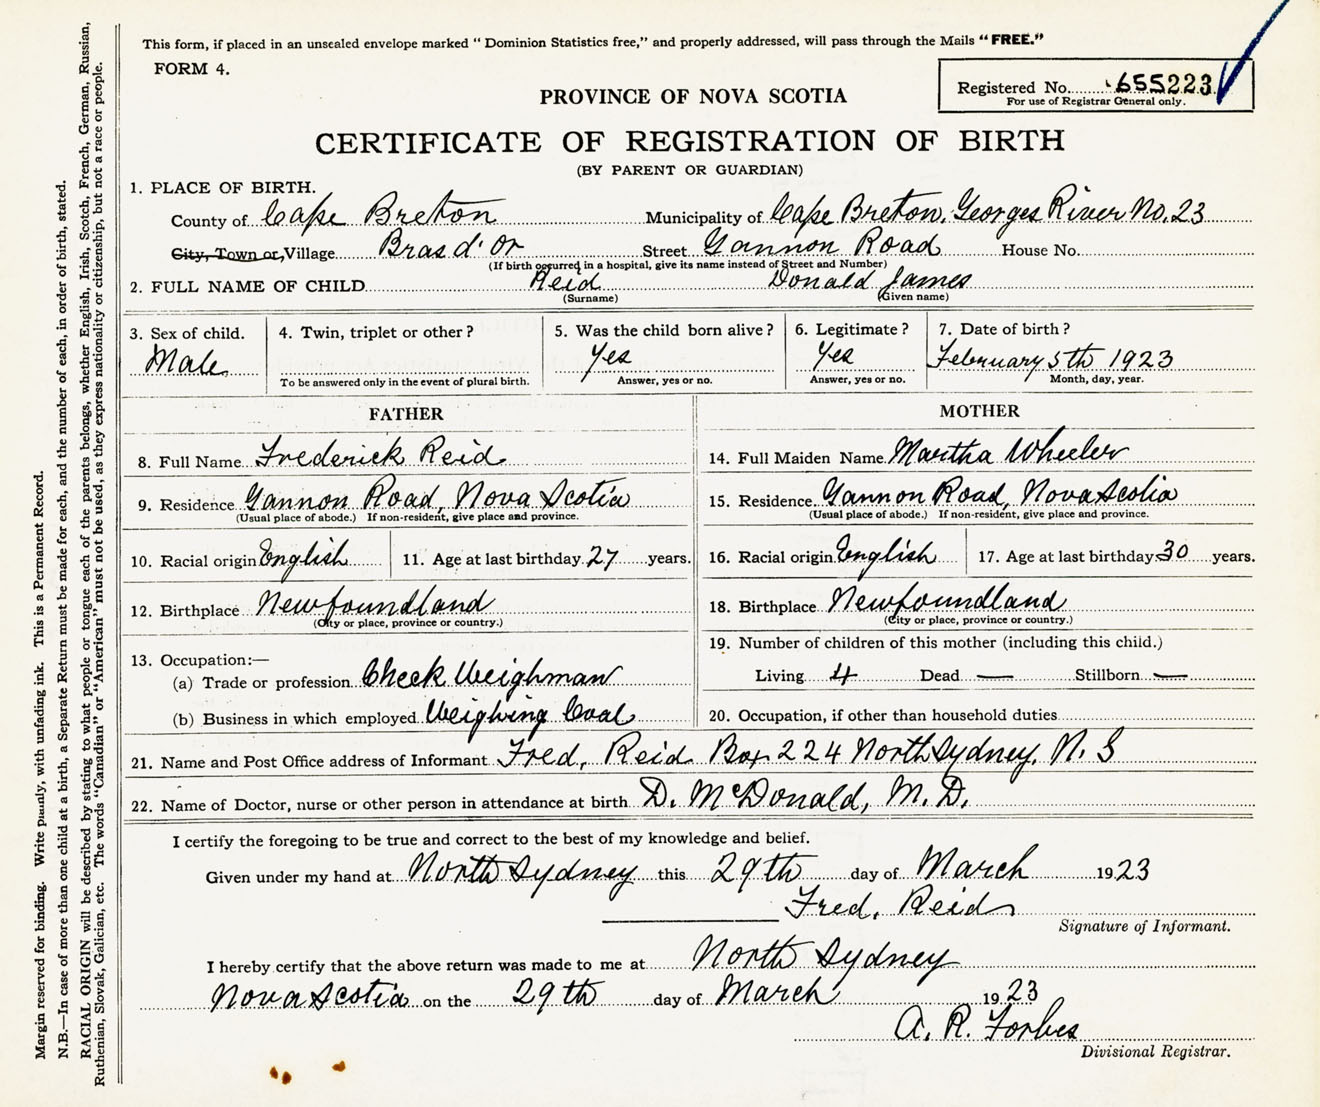 This form, if placed in an unsealed envelope marked " Dominion Statistics free," and properly addressed, will pass through the Mails "FREE."
FORM 4.
Registered No. 655223
For use of Registrar General only.
PROVINCE OF NOVA SCOTIA
CERTIFICATE OF REGISTRATION OF BIRTH
(BY PARENT OR GUARDIAN)
1. PLACE OF BIRTH.
County of Cape Breton Municipality of Cape Breton, Georges River No. 23
City, Town or, Village Bras d' Or Street Gannon Road House No.
(If birth occurred in a hospital, give its name instead of Street and Number)
2. FULL NAME OF CHILD Reid Donald James
(Surname) (Given name)
3. Sex of child. 4. Twin, triplet or other? 5. Was the child born alive? 6. Legitimate? 7. Date of birth?
Male Yes Yes February 5th 1923
To be answered only in the event of plural birth. Answer, yes or no. Answer, yes or no. Month, day, year.
FATHER MOTHER
8. Full Name Frederick Reid 14. Full Maiden Name Martha Wheeler
9. Residence Gannon Road, Nova Scotia 15. Residence Gannon Road, Nova Scotia
(Usual place of abode.) If non-resident, give place and province. (Usual place of abode.) If non-resident, give place and province.
10. Racial origin English 11. Age at last birthday 27 years. 16. Racial origin English 17. Age at last birthday 30 years.
12. Birthplace Newfoundland 18. Birthplace Newfoundland
(City or place, province or country.) (City or place, province or country.)
19. Number of children of this mother (including this child.)
13. Occupation:—
(a) Trade or profession Check Weighman Living 4 Dead — Stillborn —
(b) Business in which employed Weighing Coal 20. Occupation, if other than household duties
21. Name and Post Office address of Informant Fred, Reid Box 224 North Sydney, N. S
22. Name of Doctor, nurse or other person in attendance at birth D. McDonald, M. D.
I certify the foregoing to be true and correct to the best of my knowledge and belief.
Given under my hand at North Sydney this 29th day of March 1923
Fred, Reid
Signature of Informant.
I hereby certify that the above return was made to me at North Sydney
Nova Scotia on the 29th day of March 1923
A. R. Forbes
Divisional Registrar.
Margin reserved for binding. Write plainly, with unfading ink. This is a Permanent Record.
N.B.—In case of more than one child at a birth, a Separate Return must be made for each, and the number of each, in order of birth, stated.
RACIAL ORIGIN will be described by stating to what people or tongue each of the parents belongs, whether English, Irish, Scotch, French, German, Russian,
Ruthenian, Slovak, Galician, etc. The words "Canadian" or "American" must not be used, as they express nationality or citizenship, but not a race or people.